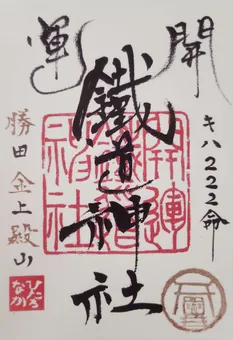 開運
キハ222命
鐵道神社
勝田金上殿山
開運鐵道神社
ひたちなか